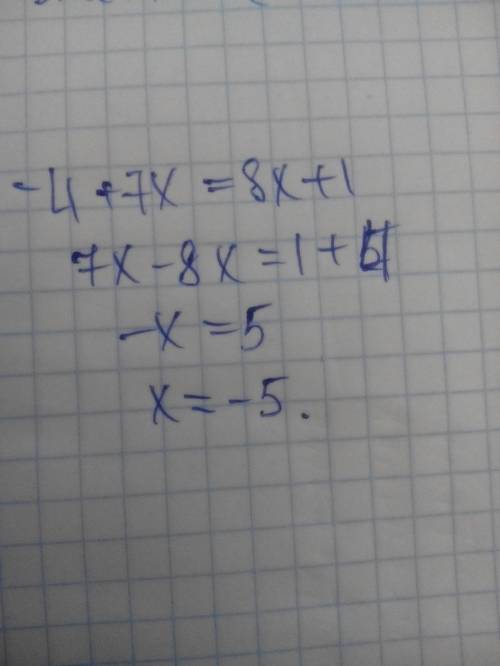 -4+7x=8x+1
7x-8x=1+4
-x=5
x=-5.